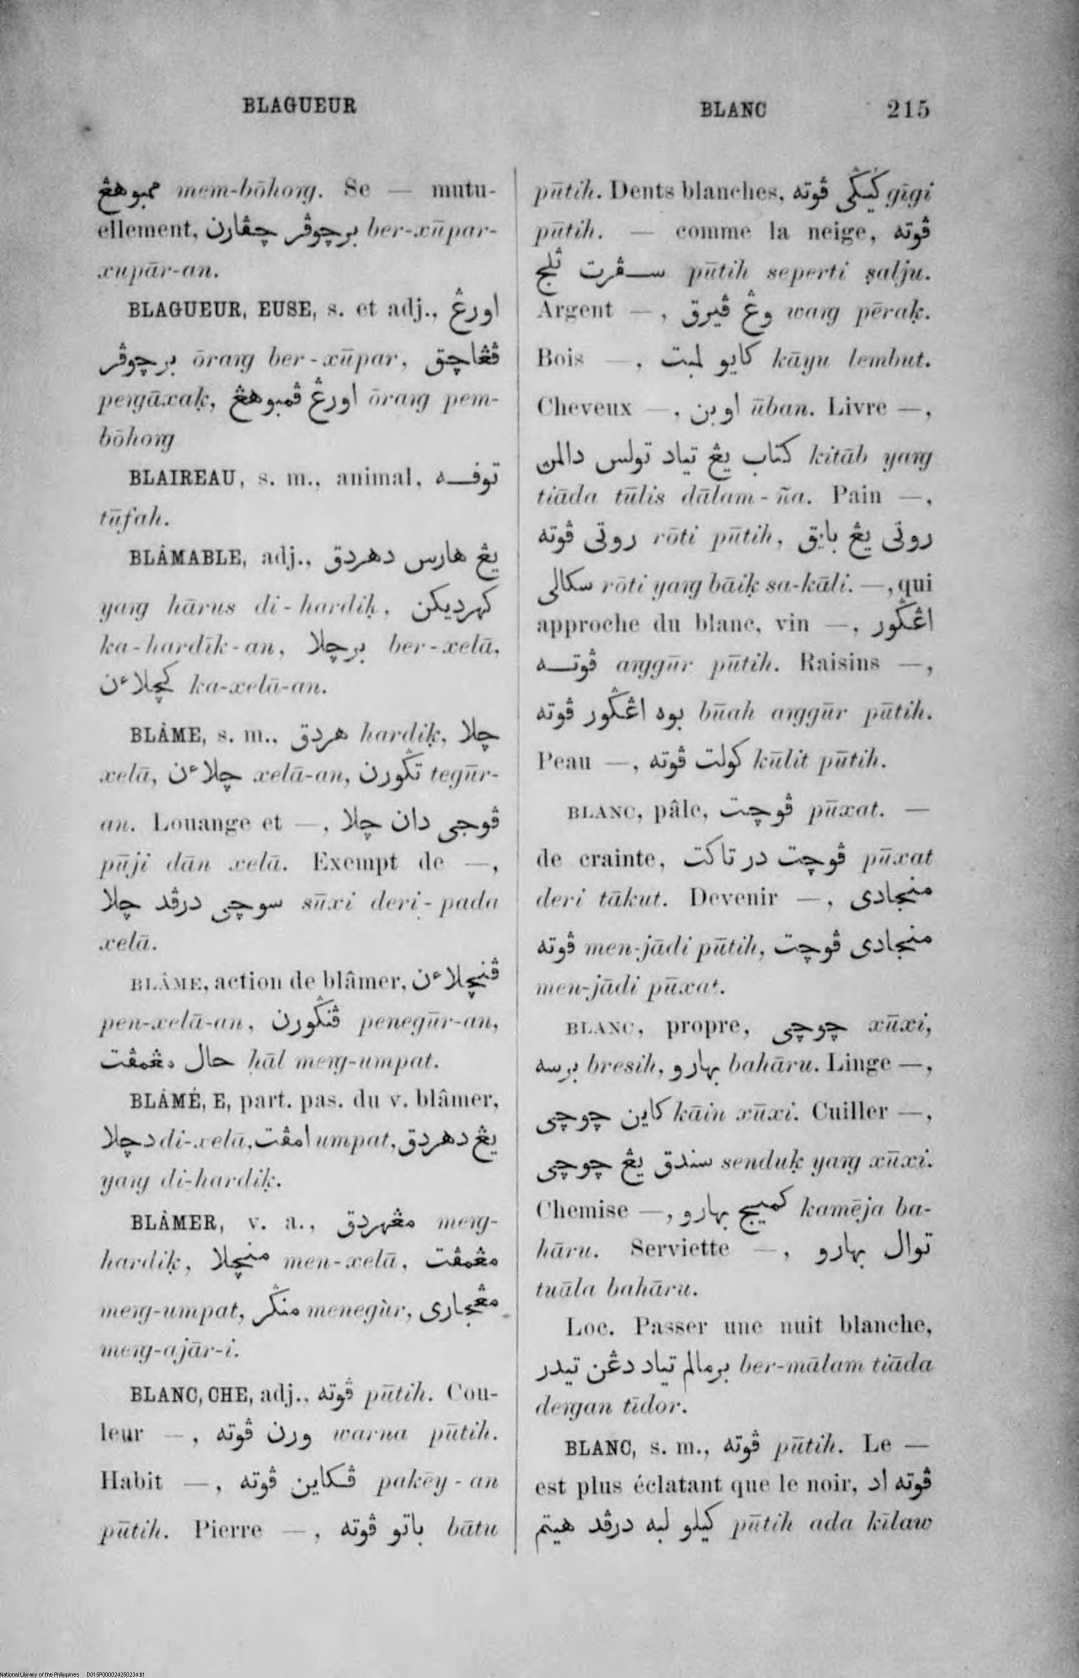 BLAGUEUR
BLANC 215
ممبوهڠ mem-bōhoıg. Se — mutu-
ellement, برچوڤر چڤارن ber-xūpar-
xupār-an.
BLAGUEUR, EUSE, s. et adj., اورڠ
برچوڤر ōraıg ber-xūpar, ڤڠاچق
peıgāxaḳ, اورڠ ڤمبوهڠ ōraıg pem-
bōhoıg
BLAIREAU, s. m., animal, توفه
tūfah.
BLÂMABLE, adj., يڠ هارس دهردق
yaıg hārus di-hardiḳ, كهرديكن
ka-hardīk-an, برچلا ber-xelā,
كچلاءن ka-xelā-an.
BLÂME, s. m., هردق hardiḳ, چلا
xelā, چلاءن xelā-an, تݢورن tegūr-
an. Louange et —, ڤوجى دان چلا
pūji dān xelā. Exempt de —,
سوچى درڤد چلا sūxi deri-pada
xelā.
BLÂME, action de blâmer, ڤنچلاءن
pen-xelā-an, ڤنݢورن penegūr-an,
حال مڠمڤت hāl meıg-umpat.
BLÂMÉ, E, part. pas. du v. blâmer,
دچلا di-xelā, امڤت umpat, يڠ دهردق
yaıg di-hardiḳ.
BLÂMER, v. a., مڠهردق meıg-
hardiḳ, منچلا men-xelā, مڠمڤت
meıg-umpat, منݢر menegùr, مڠجارى
meıg-ajār-i.
BLANC, CHE, adj., ڤوته pūtih. Cou-
leur —, ورن ڤوته warna pūtih.
Habit —, ڤكاين ڤوته pakēy-an
pūtih. Pierre —, باتو ڤوته bātu
pūtih. Dents blanches, ݢيݢى ڤوته gīgi
pūtih. — comme la neige, ڤوته
سڤرت ثلج pūtih seperti ṣalju.
Argent —, وڠ ڤيرق waıg pēraḳ.
Bois —, كايو لمبت kāyu lembut.
Cheveux —, اوبن ūban. Livre —,
كتاب يڠ تياد تولس دالمن kitāb yaıg
tiāda tūlis dālam-ña. Pain —,
روتى ڤوته rōti pūtih, روتى يڠ بايق
سكالى rōti yaıg bāiḳ sa-kāli. —, qui
approche du blanc, vin —, اڠݢور
ڤوته aıggūr pūtih. Raisins —,
بوه اڠݢور ڤوته būah aıggūr pūtih.
Peau —, كولت ڤوته kūlit pūtih.
BLANC, pâle, ڤوچت pūxat. —
de crainte, ڤوچت در تاكت pūxat
deri tākut. Devenir —, منجادى
ڤوته men-jādi pūtih, منجادى ڤوچت
men-jādi pūxat.
BLANC, propre, چوچى xūxi,
برسه bresih, بهارو bahāru. Linge —,
كاين چوچى kāin xūxi. Cuiller —,
سندق يڠ چوچى senduḳ yaıg xūxi.
Chemise —, كميج بهارو kamēja ba-
hāru. Serviette —, توال بهارو
tuāla bahāru.
Loc. Passer une nuit blanche,
برمالم تياد دڠن تيدر ber-mālam tiāda
deıgan tīdor.
BLANC, s. m., ڤوته pūtih. Le —
est plus éclatant que le noir, ڤوته اد
كيلو لبه درڤد هيتم pūtih ada kīlaw
National Library of the Philippines